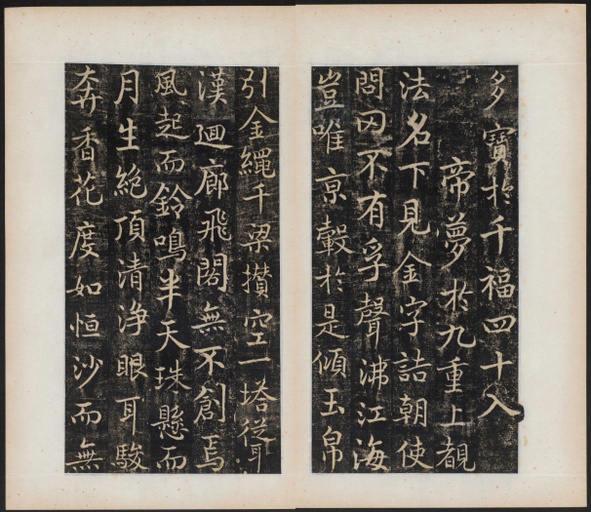 多寶於千福四十入
帝夢於九重上覩
法名下見金字詰朝使
問罔不有孚聲沸江海
豈唯京轂於是傾玉帛
引金繩千梁攅空一塔從聳
漢廻廊飛閣無不創焉
風起而鈴鳴半天珠懸而
月生絕頂清浄眼耳駿
奔香花度如恒沙而無